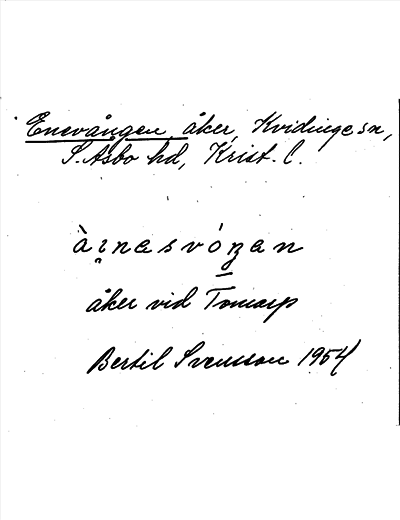 Enevången åker, Kvidinge sn,
S. Åsbo hd, Krist. l.
àınesvóŋen
åker vid Tomarp
Bertil Svensson 1954